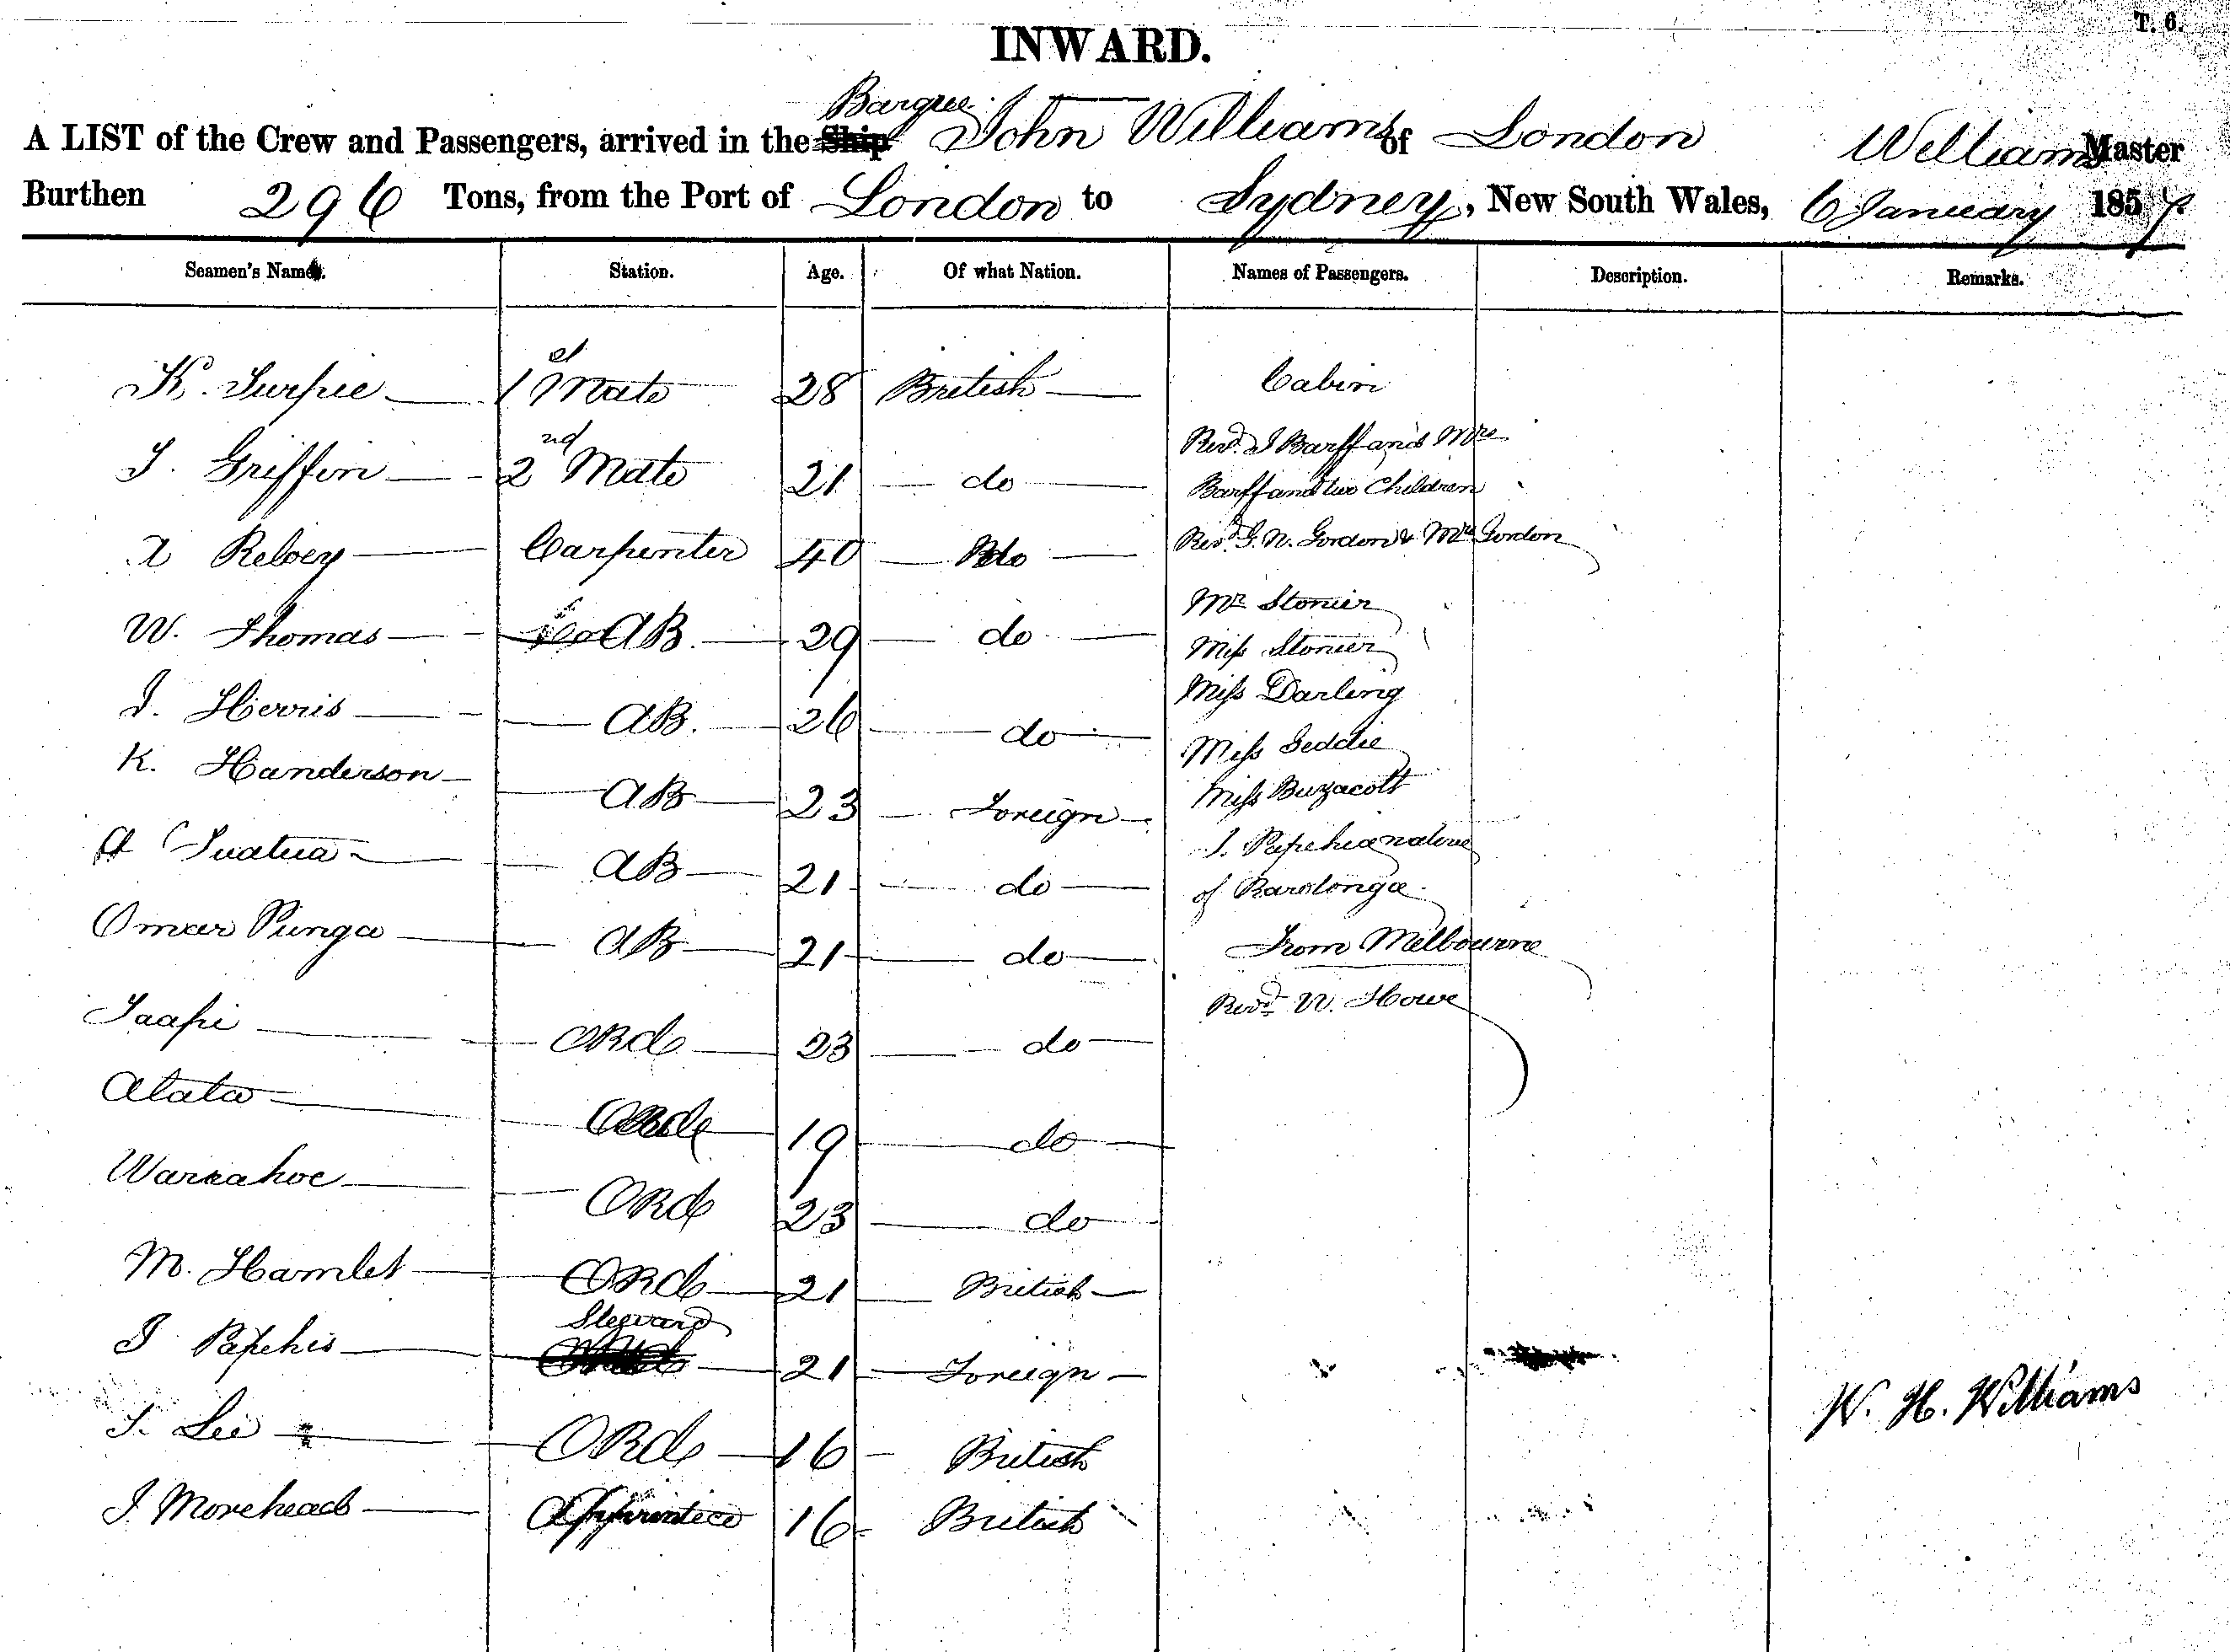 T. 6.
INWARD.
Barque
A LIST of the Crew and Passengers, arrived in the Ship John Williams of London Williams Master
Burthen 296 Tons, from the Port of London to Sydney, New South Wales, 6 January 1857
Seamen's Names. Station. Age. Of what Nation. Names of Passengers. Description. Remarks.
K. Turpie 1st Mate 28 British Cabin
J. Griffin 2nd Mate 21 do Revd. J Barff and Mrs
Barff and two Children
Carpenter 40 do Revd. G. N. Gordon & Mrs Gordon
W. Thomas AB. 29 do Mr Stonier
Miss Stonier
J. Herris AB. 26 do Miss Darling
Miss Geddie
K. Handerson AB 23 Foreign Miss Buzacott
Tuatua AB 21 do J. Papehia native
of Rarotonga
Omar Punga AB 21 do From Melbourne
Taapi ORd 23 do Revd. W. Howe
Alata ORd 19 do
Warrahoe ORd 23 do
M. Hamlet ORd 21 British
Steward
J Papehis 21 Foreign
J. Lee ORd 16 British
W. H. Williams
J. Morehead Apprentice 16 British